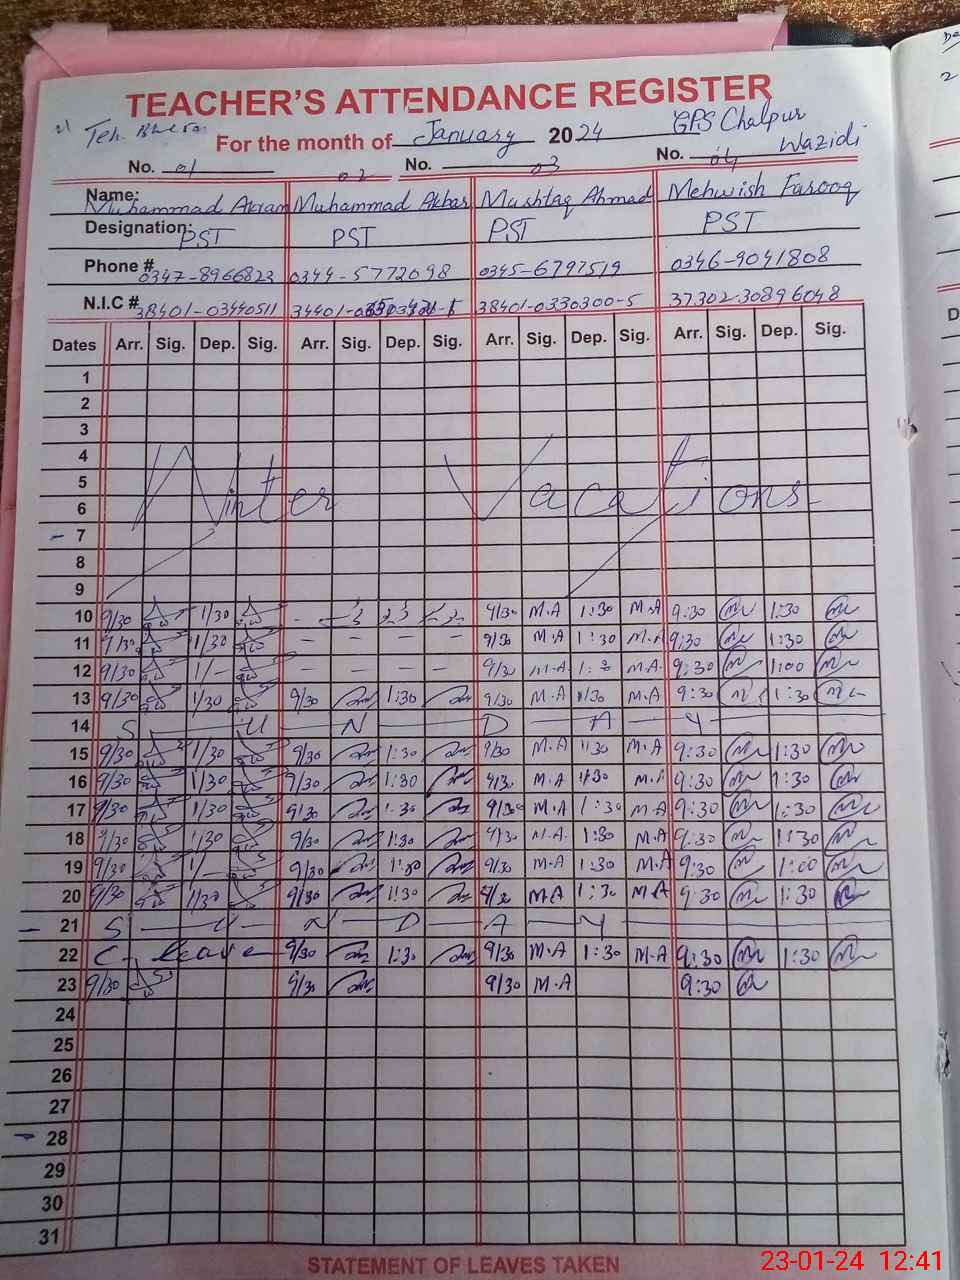 TEACHER'S ATTENDANCE REGISTER
Teh. For the month of January 2024 GPS Chalpur Wazidi
No. 01 02 No. 03 No. 04
Name: Muhammad Akram Muhammad Akbar Mushtaq Ahmad Mehwish Farooq
Designation: PST PST PST PST
Phone # 0347-8966823 0344-5772098 0345-6797519 0346-9041808
N.I.C # 38401-03440511 38401-0330300-5 37302-30896048
Dates Arr. Sig. Dep. Sig. Arr. Sig. Dep. Sig. Arr. Sig. Dep. Sig. Arr. Sig. Dep. Sig.
1
2
3
4
5
6 Winter Vacations
7
8
9
10 9/30 1/30 9/30 M.A 1:30 M.A 9:30 1:30
11 9/30 1/30 - - - - 9/30 M.A 1:30 M.A 9:30 1:30
12 9/30 1/- - - - - 9/30 M.A M.A 9:30 1:00
13 9/30 1/30 9/30 1:30 9/30 M.A 1/30 M.A 9:30 1:30
14 S U N D A Y
15 9/30 1/30 9/30 1:30 9/30 M.A 1/30 M.A 9:30 1:30
16 9/30 1/30 9/30 1:30 9/30 M.A 1/30 M.A 9:30 1:30
17 9/30 1/30 9/30 1:30 9/30 M.A 1:30 M.A 9:30 1:30
18 9/30 1/30 9/30 1:30 9/30 M.A. 1:30 M.A 9:30 1:30
19 9/30 1/- 9/30 1:30 9/30 M.A 1:30 M.A 9:30 1:00
20 9/30 1/30 9/30 1:30 9/30 M.A 1:30 M.A 9:30 1:30
21 S U N D A Y
22 C. leave 9/30 1:30 9/30 M.A 1:30 M.A 9:30 1:30
23 9/30 9/30 9/30 M.A 9:30
24
25
26
27
28
29
30
31
STATEMENT OF LEAVES TAKEN
23-01-24 12:41